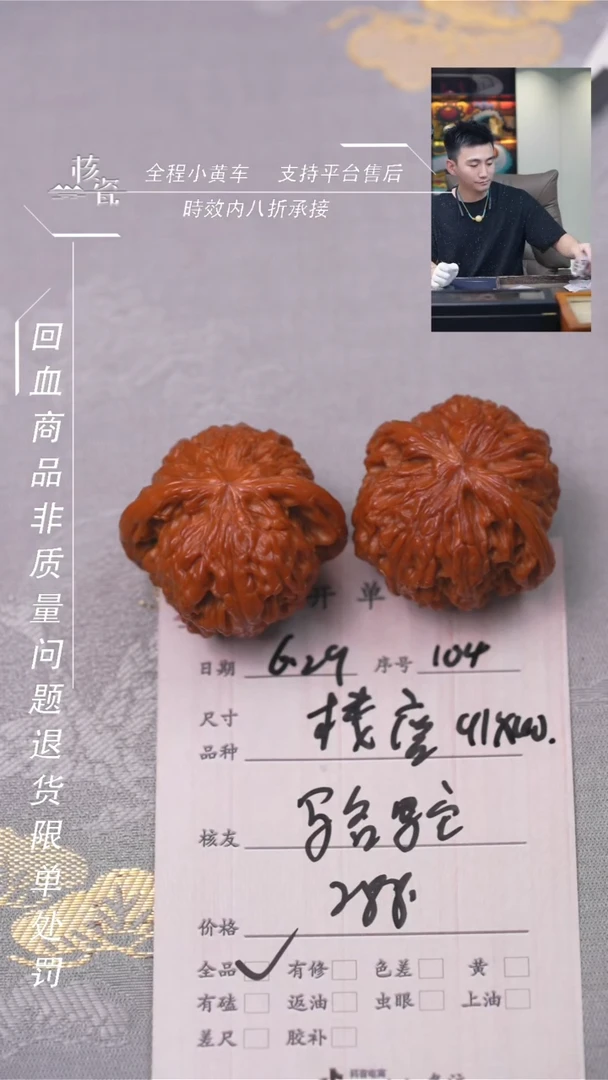 核瓷
全程小黄车 支持平台售后
時效内八折承接
回血商品非质量问题退货限单处罚
开单
日期 6.29 序号 104
尺寸
品种
核友
价格 288.
全品 ✓ 有修 色差 黄
有磕 返油 虫眼 上油
差尺 胶补
抖音电商